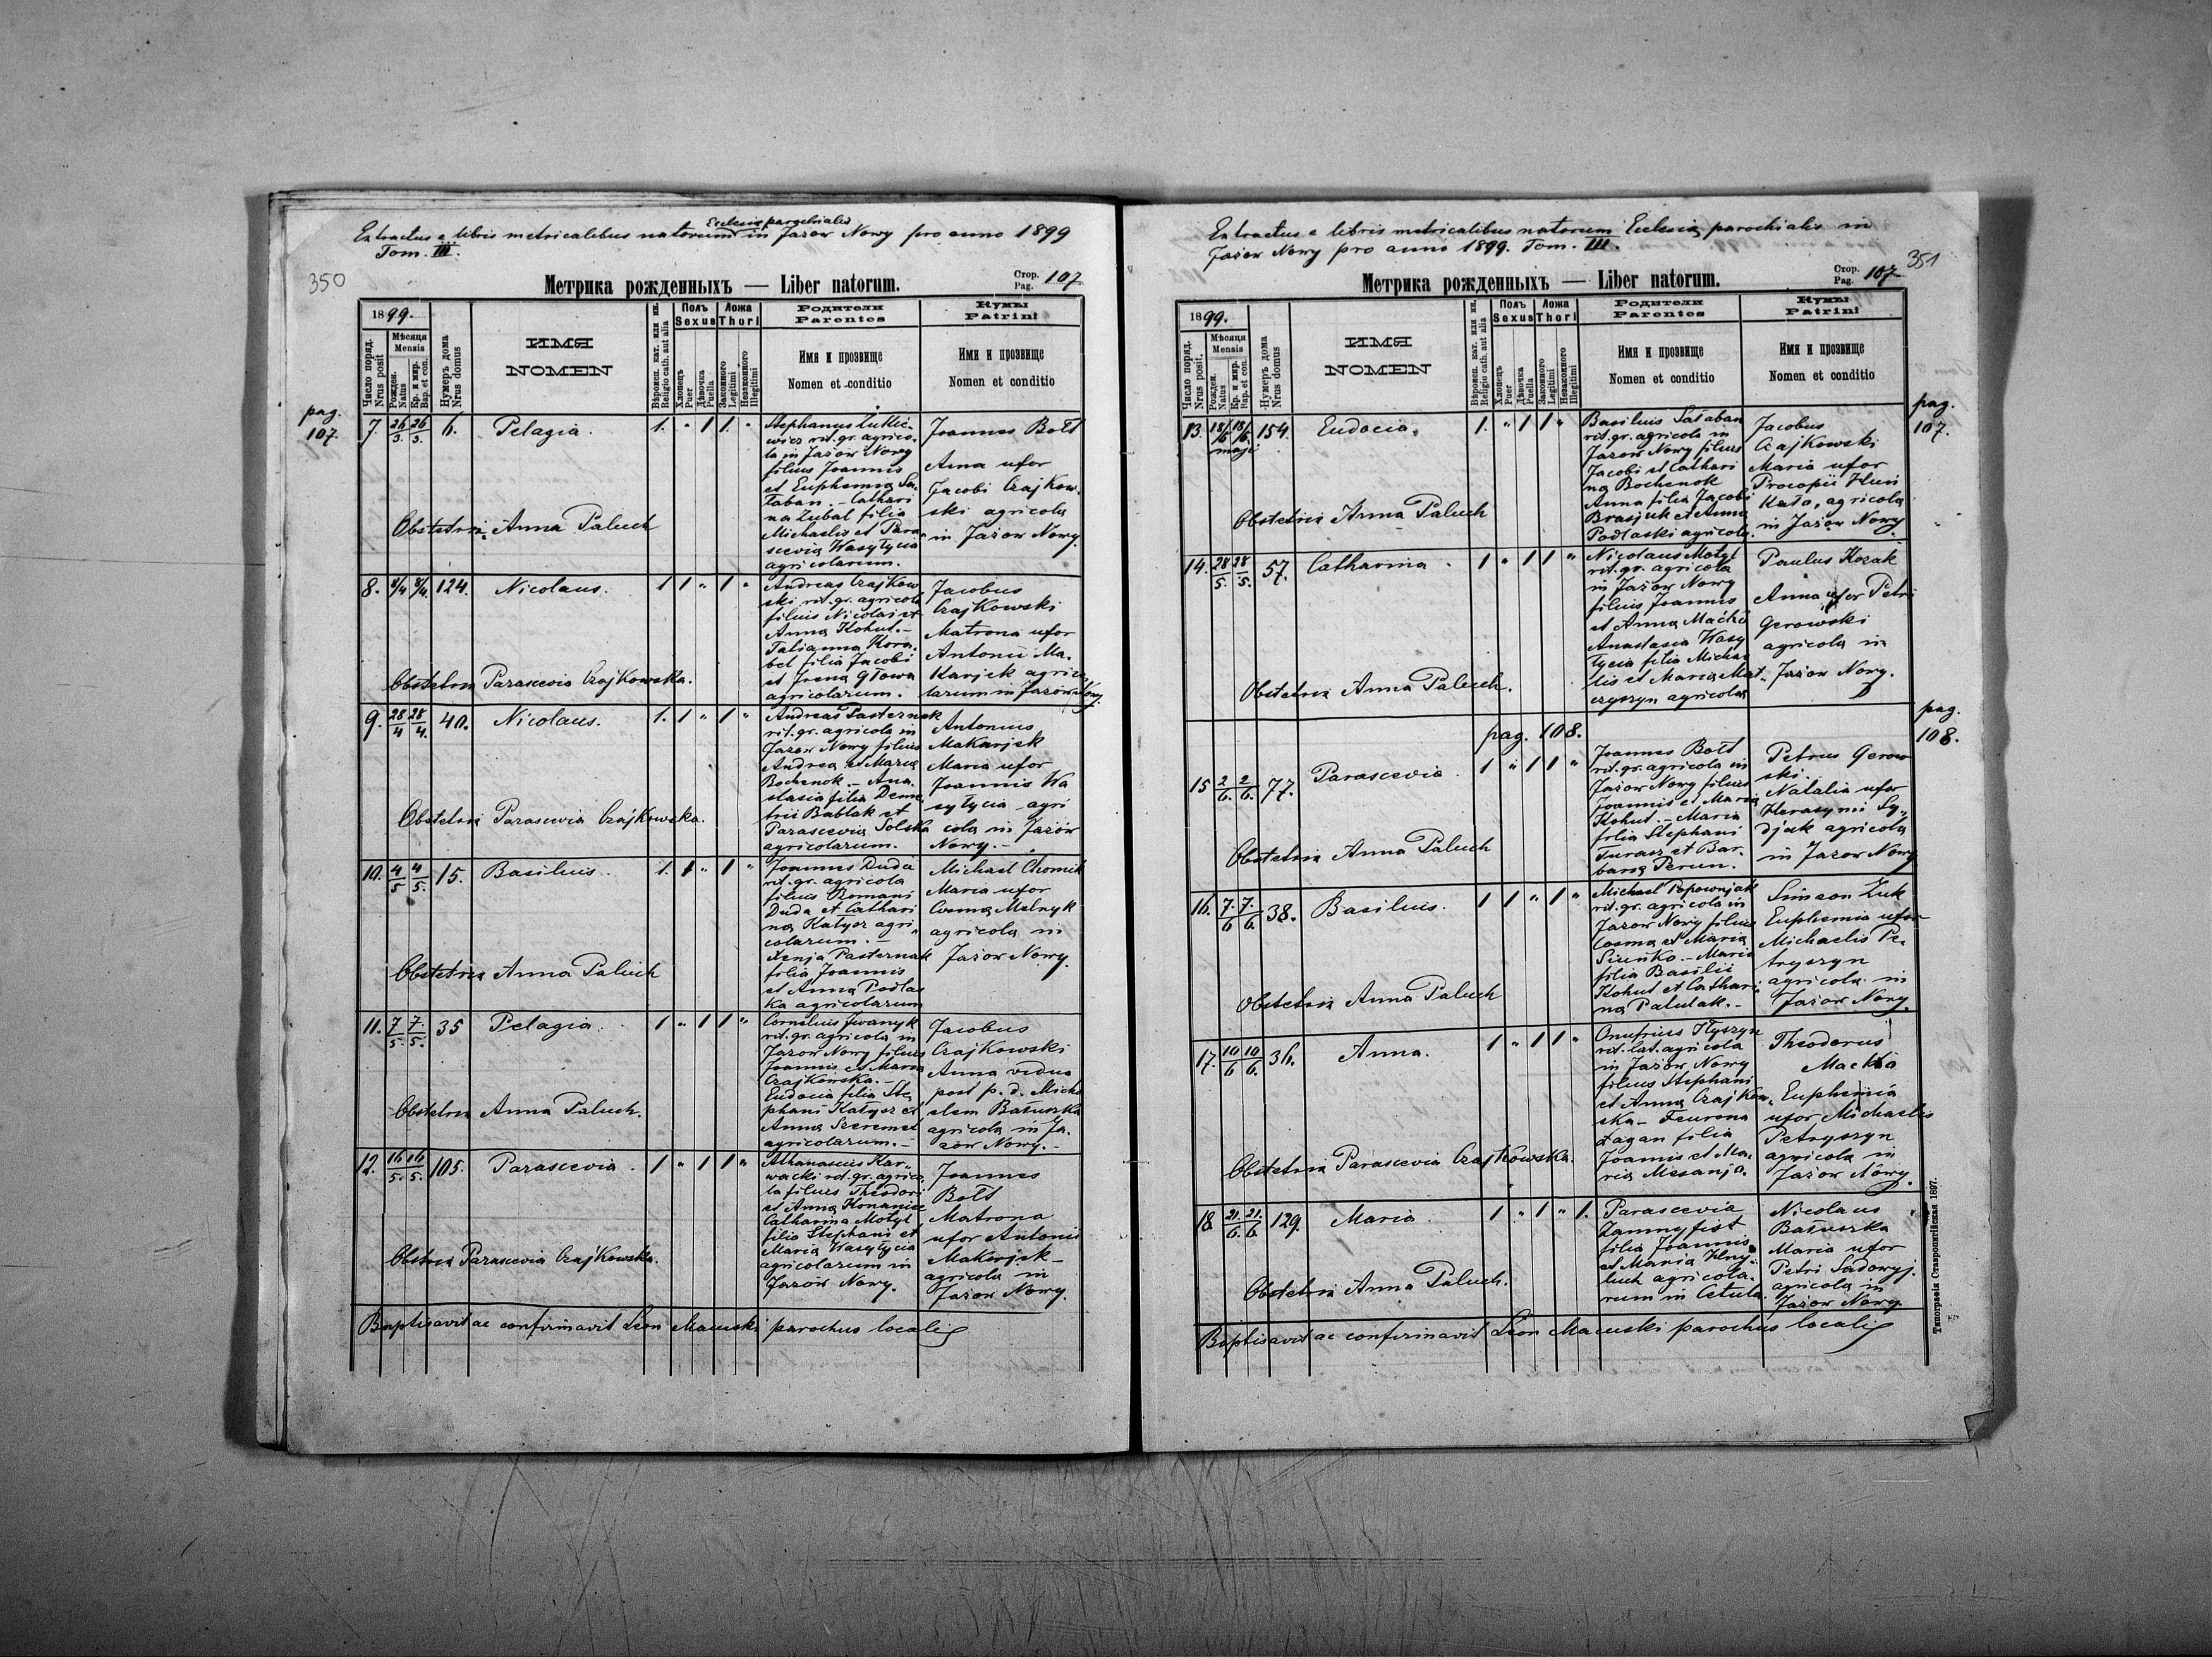 Extractus e libris metricalibus natorum Ecclesiæ parochialis in Jazow Nowy pro anno 1899
Tom. III.
350
Метрика рожденныхъ — Liber natorum.
Стор. Pag. 107
1899.
Число поряд. Nrus posit
Мѣсяця Mensis
Рожден. Natus
Кр. и мир. Bap. et con.
Нумеръ дома Nrus domus
ИМЯ
NOMEN
Вѣроисп. кат. или ин. Religio cath. aut alia
Полъ Sexus
Хлопець Puer
Дѣвочка Puella
Ложа Thori
Законного Legitimi
Незаконного Illegitimi
Родители Parentes
Имя и прозвище
Nomen et conditio
Кумы Patrini
Имя и прозвище
Nomen et conditio
pag.
107.
7. 26/3. 26/3. 6. Pelagia. 1. " 1 1. "
Stephanus Lutkie-
wicz rit. gr. agrico-
la in Jazow Nowy
filius Joannis
et Euphemia Sa-
łaban. - Cathari
na Zubal filia
Michaelis et Para
scevia Wasyłycia
agricolarum.
Joannes Bołt
Anna uxor
Jacobi Czajkow-
ski agricola
in Jazow Nowy.
Obstetrix Anna Paluch
8. 8/4 8/4. 124. Nicolaus. 1 1 " 1 "
Andreas Czajkow
ski rit. gr. agricola
filius Nicolai et
Anna Kohut. -
Tatianna Kora-
bel filia Jacobi
et Irena Głowa
agricolarum.
Jacobus
Czajkowski
Matrona uxor
Antonii Ma-
karjek agrico
larum in Jazow Nowy.
Obstetrix Parascevia Czajkowska.
9. 28/4 28/4. 40. Nicolaus. 1. 1 " 1 "
Andreas Pasternak
rit. gr. agricola in
Jazow Nowy filius
Andrea et Maria
Bochenok. - Ana-
stasia filia Deme
trii Bablak et
Parascevia Solska
agricolarum.
Antonius
Makarjek
Maria uxor
Joannis Wa
syłycia agri
cola in Jazow
Nowy. -
Obstetrix Parascevia Czajkowska.
10. 4/5 4/5. 15. Basilius. 1. 1 " 1 "
Joannes Duda
rit. gr. agricola
filius Romani
Duda et Cathari
na Katyoz agri
colarum. -
Xenja Pasternak
filia Joannis
et Anna Podlas
ka agricolarum
Michael Chomik
Maria uxor
Cosma Melnyk
agricola in
Jazow Nowy.
Obstetrix Anna Paluch
11. 7/5. 7/5. 35 Pelagia. 1 " 1 1 "
Cornelius Iwanyk
rit. gr. agricola in
Jazow Nowy filius
Joannis et Maria
Czajkowska. -
Eudocia filia Ste
phani Katyoz et
Anna Szeremet
agricolarum. -
Jacobus
Czajkowski
Anna vidua
post p. d. Micha
elem Batuszka
agricola in Ja-
zow Nowy. -
Obstetrix Anna Paluch.
12. 16/5. 16/5. 105. Parascevia. 1 " 1 1 "
Athanasius Kar-
wacki rit. gr. agrico
la filius Theodori
et Anna Konanice
Catharina Motyl
filia Stephani et
Maria Wasyłycia
agricolarum in
Jazow Nowy.
Joannes
Bołt
Matrona
uxor Antonii
Makarjek -
agricola in
Jazow Nowy.
Obstetrix Parascevia Czajkowska.
Baptisavit ac confirmavit Leon Macuski parochus localis
Extractus e libris metricalibus natorum Ecclesiæ parochialis in
Jazow Nowy pro anno 1899. Tom. III.
351
Метрика рожденныхъ — Liber natorum.
Стор. Pag. 107
1899.
Число поряд. Nrus posit.
Мѣсяця Mensis
Рожден. Natus
Кр. и мир. Bap. et con.
Нумеръ дома Nrus domus
ИМЯ
NOMEN
Вѣроисп. кат. или ин. Religio cath. aut alia
Полъ Sexus
Хлопець Puer
Дѣвочка Puella
Ложа Thori
Законного Legitimi
Незаконного Illegitimi
Родители Parentes
Имя и прозвище
Nomen et conditio
Кумы Patrini
Имя и прозвище
Nomen et conditio
pag.
107.
13. 18/6 18/6. maji 154. Eudocia. 1. " 1 1 "
Basilius Sałaban
rit. gr. agricola in
Jazow Nowy filius
Jacobi et Cathari
na Bochenok
Anna filia Jacobi
Brasjuk et Anna
Podlaski agricola.
Jacobus
Czajkowski
Maria uxor
Procopii
agricola
in Jazow Nowy.
Obstetrix Anna Paluch
14. 28/5 28/5. 57. Catharina. 1 " 1 1 "
Nicolaus Motyl
rit. gr. agricola
in Jazow Nowy
filius Joannis
et Anna Maćko
Anastasia Wasy
łycia filia Micha
lis et Maria Mat-
czyszyn agricola
Paulus Kozak
Anna uxor Petri
Gerowski
agricola in
Jazow Nowy.
Obstetrix Anna Paluch.
pag. 108.
pag.
108.
15 2/6. 2/6. 77. Parascevia. 1 " 1 1 "
Joannes Bołt
rit. gr. agricola in
Jazow Nowy filius
Joannis et Maria
Kohut. - Maria
filia Stephani
Turasz et Bar-
bara Perun.
Petrus Gerow
ski.
Natalia uxor
Herasymi Sy-
djak agricola
in Jazow Nowy
Obstetrix Anna Paluch
16. 7/6 7/6. 38. Basilius. 1 1 " 1 "
Michael Popownjak
rit. gr. agricola in
Jazow Nowy filius
Cosma et Maria
Sieńko. - Maria
filia Basilii
Kohut et Cathari
na Palulak. -
Simeon Żuk
Euphemia uxor
Michaelis Pe-
tryszyn
agricola in
Jazow Nowy.
Obstetrix Anna Paluch
17. 10/6 10/6. 36. Anna. 1 " 1 1 "
Onufrius Hyszyn
rit. lat. agricola
in Jazow Nowy
filius Stephani
et Anna Czajkow-
ska - Feurona
Łagan filia
Joannis et Ma-
ria Mesanja.
Theodorus
Maćko
Euphemia
uxor Michaelis
Petryszyn
agricola in
Jazow Nowy.
Obstetrix Parascevia Czajkowska.
18. 21/6. 21/6. 129. Maria. 1 " 1 " 1.
Parascevia
filia Joannis
et Maria
agricola-
rum in Cetula.
Nicolaus
Batuszka
Maria uxor
Petri Sadowyj.
agricola in
Jazow Nowy.
Obstetrix Anna Paluch.
Baptisavit ac confirmavit Leon Macuski parochus localis
Типографія Ставропигійская 1897.